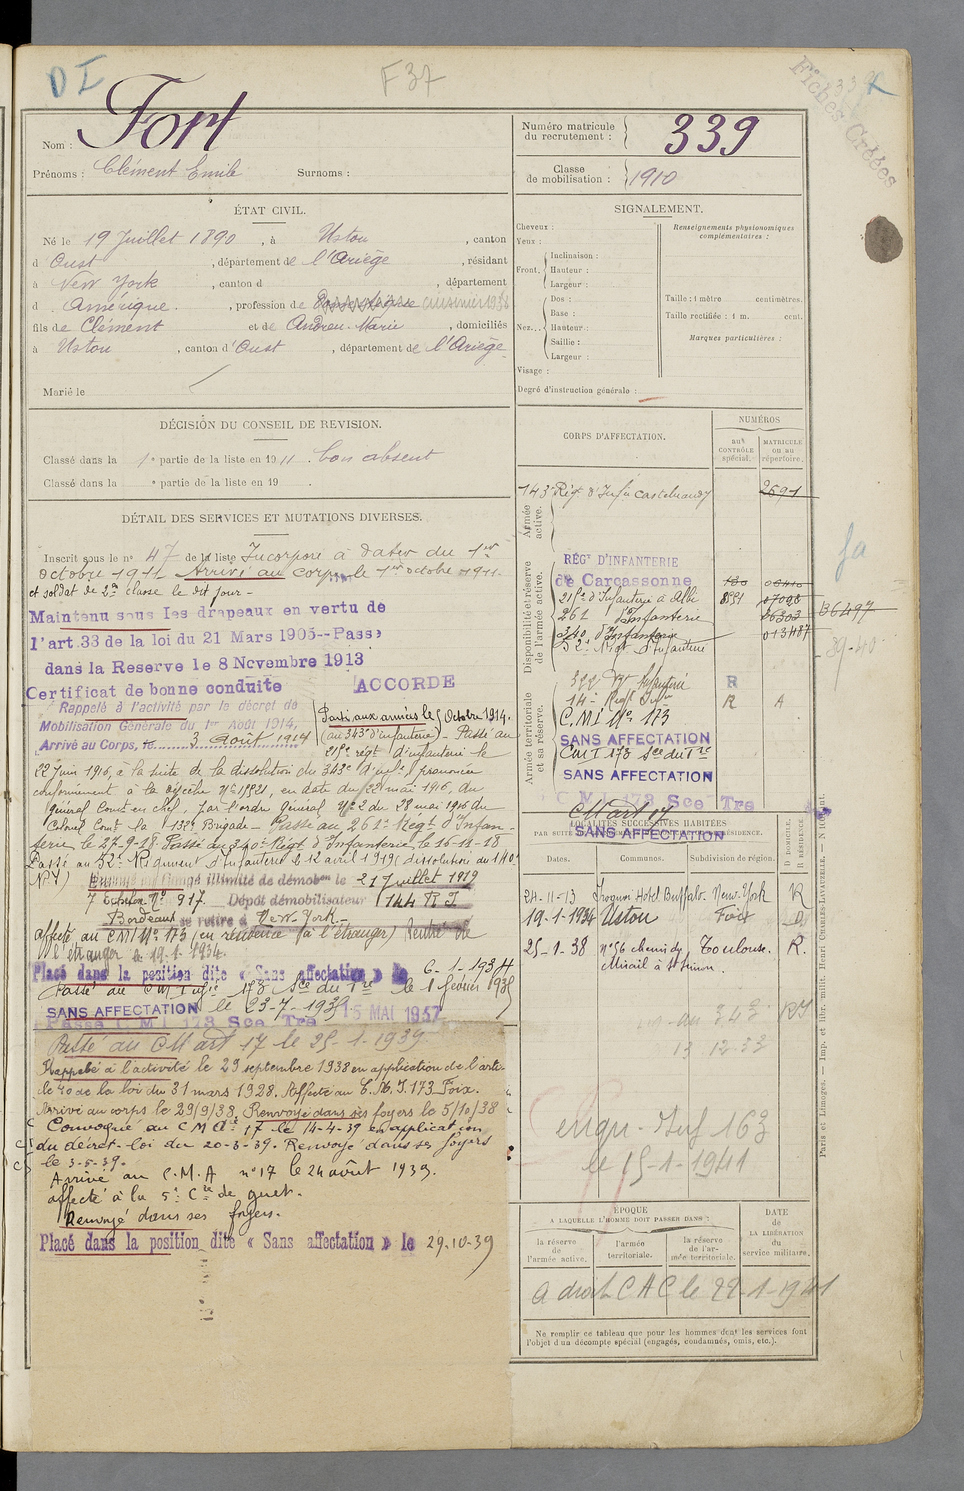 D I
F 37
339
Fiches Créées
Nom : Fort
Prénoms : Clément Emile Surnoms :
Numéro matricule du recrutement : 339
Classe de mobilisation : 1910
ÉTAT CIVIL.
Né le 19 Juillet 1890, à Ustou, canton
d Oust, département de l'Ariège, résidant
à New York, canton d , département
d Amérique., profession de cuisinier 1938
fils de Clément et de Andreu Marie, domiciliés
à Ustou, canton d'Oust, département de l'Ariège
Marié le
SIGNALEMENT.
Cheveux :
Yeux :
Front. Inclinaison :
Hauteur :
Largeur :
Nez. Dos :
Base :
Hauteur :
Saillie :
Largeur :
Visage :
Degré d'instruction générale :
Renseignements physionomiques complémentaires :
Taille : 1 mètre centimètres.
Taille rectifiée : 1 m. cent.
Marques particulières :
DÉCISION DU CONSEIL DE REVISION.
Classé dans la 1e partie de la liste en 1911. bon absent
Classé dans la e partie de la liste en 19 .
DÉTAIL DES SERVICES ET MUTATIONS DIVERSES.
Inscrit sous le no 47 de la liste Incorporé à dater du 1er
octobre 1911 Arrivé au corps le 1er octobre 1911.
et soldat de 2e classe le dit jour -
Maintenu sous les drapeaux en vertu de
l'art. 33 de la loi du 21 Mars 1905--Passé
dans la Reserve le 8 Novembre 1913
Certificat de bonne conduite ACCORDE
Rappelé à l'activité par le décret de
Mobilisation Générale du 1er Août 1914,
Arrivé au Corps, le 3 Août 1914
Parti aux armées le 5 Octobre 1914.
(au 343e d'infanterie) - Passé au
215e régt d'infanterie le
22 Juin 1916, à la suite de la dissolution du 343e d'infie prononcée
conformément à la décision No 17521, en date du 22 mai 1916, du
Général Comt en chef, par l'ordre général No 2 du 28 mai 1916 du
Colonel Comt la 132e Brigade - Passé au 261e Régt d'Infan-
terie le 27-9-18. Passé au 340e Régt d'Infanterie, le 16-11-18
Passé au 52e Régiment d'Infanterie le 12 avril 1919 (dissolution du 340e
R.I) Envoyé en Congé illimité de démobon le 21 Juillet 1919
7 Echelon No 917 Dépôt démobilisateur 144 R I
Bordeaux se retire à New York -
affecté au CMI No 173 (en résidence à l'étranger) Rentré de
l'étranger le 19.1.1934.
Placé dans la position dite « Sans affectation » le 6-1-1934
Passé au CM I infie 178 Sce du Tre le 1 février 1935
SANS AFFECTATION le 23-7-1935 15 MAI 1937
Passé C M I 178 Sce Tre
Passé au CM art 17 le 25-1-1939
Rappelé à l'activité le 29 septembre 1938 en application de l'arti-
cle 40 de la loi du 31 mars 1928. Affecté au C.M.I. 173 Foix.
Arrivé au corps le 29/9/38, Renvoyé dans ses foyers le 5/10/38
Convoqué au C M Ate 17 le 14-4-39 en application
du décret-loi du 20-3-39. Renvoyé dans ses foyers
le 3-5-39.
Arrivé au C.M.A no 17 le 24 août 1939.
affecté à la 5e Cie de guet.
Renvoyé dans ses foyers.
Placé dans la position dite « Sans affectation » le 29-10-39
CORPS D'AFFECTATION.
NUMÉROS
au CONTRÔLE spécial.
MATRICULE ou au répertoire.
Armée active.
143e Régt d'Infie Castelnaudy 2691
Disponibilité et réserve de l'armée active.
RÉGt D'INFANTERIE
de Carcassonne
215e d'Infanterie à Albi
261 d'Infanterie 36303
340 d'Infanterie 013487
52e Régt d'Infanterie
36497
39-40
Armée territoriale et sa réserve.
322 Rt Infanterie R
14e Regt Infie R A
C.M.I No 173
SANS AFFECTATION
CM I 178 Sce du Tre
SANS AFFECTATION
C M I 178 Sce Tre
CM art 17
SANS AFFECTATION
LOCALITÉS SUCCESSIVES HABITÉES
Dates. Communes. Subdivision de région. D DOMICILE. R RÉSIDENCE.
24-11-13 Iroquois Hôtel Buffalo New-York R
19-1-1934 Ustou Foix D
25-1-38 no 56 chemin du Mirail à St Simon. Toulouse. R.
au 343 RI
13.12.33
le 15-1-1941
ÉPOQUE
A LAQUELLE L'HOMME DOIT PASSER DANS :
la réserve de l'armée active.
l'armée territoriale.
la réserve de l'armée territoriale.
DATE de LA LIBÉRATION du service militaire.
A droit C A C le 22-1-1941
Ne remplir ce tableau que pour les hommes dont les services font
l'objet d'un décompte spécial (engagés, condamnés, omis, etc.).
Paris et Limoges. — Imp. et libr. milit. Henri CHARLES-LAVAUZELLE.